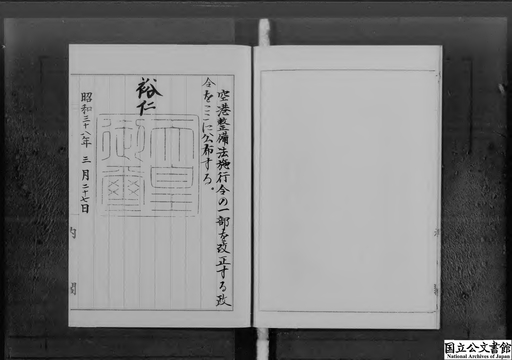 空港整備法施行令の一部を改正する政
令をここに公布する。
裕仁
天皇
御璽
昭和三十八年三月二十七日
内閣
国立公文書館
National Archives of Japan